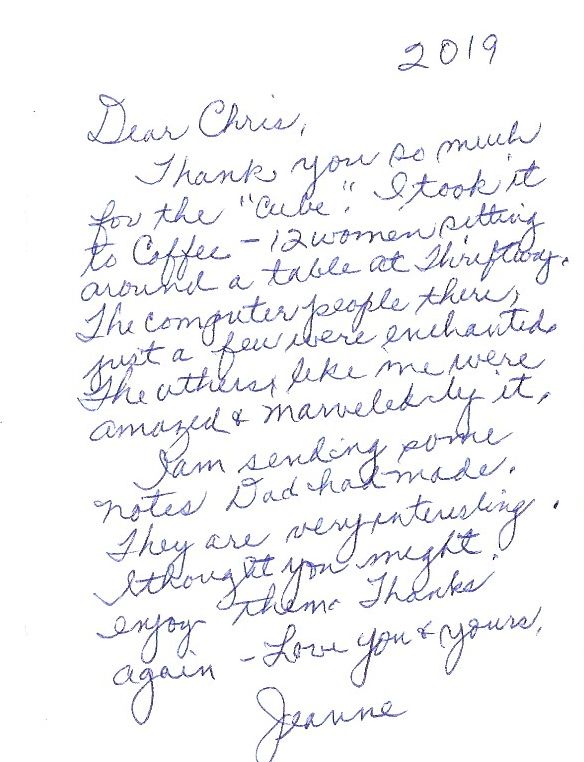 2019
Dear Chris,
Thank you so much
for the "Cube". I took it
to Coffee - 12 women sitting
around a table at Thriftway.
The computer people there,
just a few were enchanted.
The others, like me were
amazed & marveled by it.
I am sending some
notes Dad had made.
They are very interesting.
I thought you might
enjoy them. Thanks
again - Love you & yours,
Jeanne